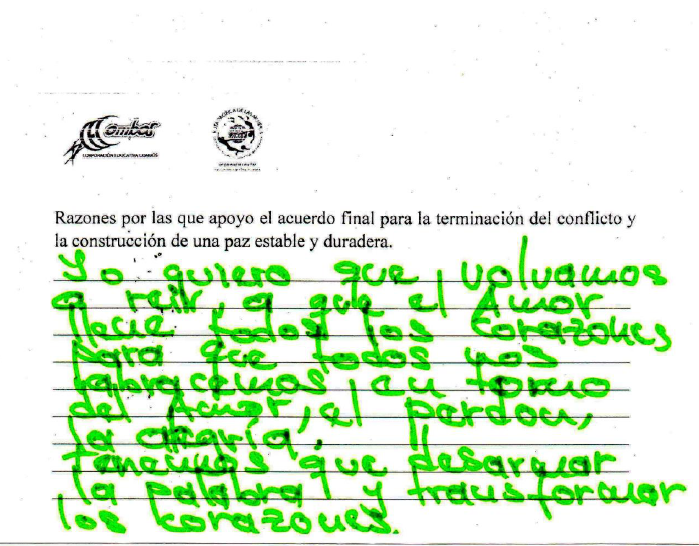 Combos
CORPORACIÓN EDUCATIVA COMBOS
Razones por las que apoyo el acuerdo final para la terminación del conflicto y
la construcción de una paz estable y duradera.
Yo quiero que volvamos
a reir, a que el Amor
llene todos los corazones
para que todos nos
abracemos en torno
del Amor, el perdon,
la alegria.
Tenemos que desarmar
la palabra y transformar
los corazones.